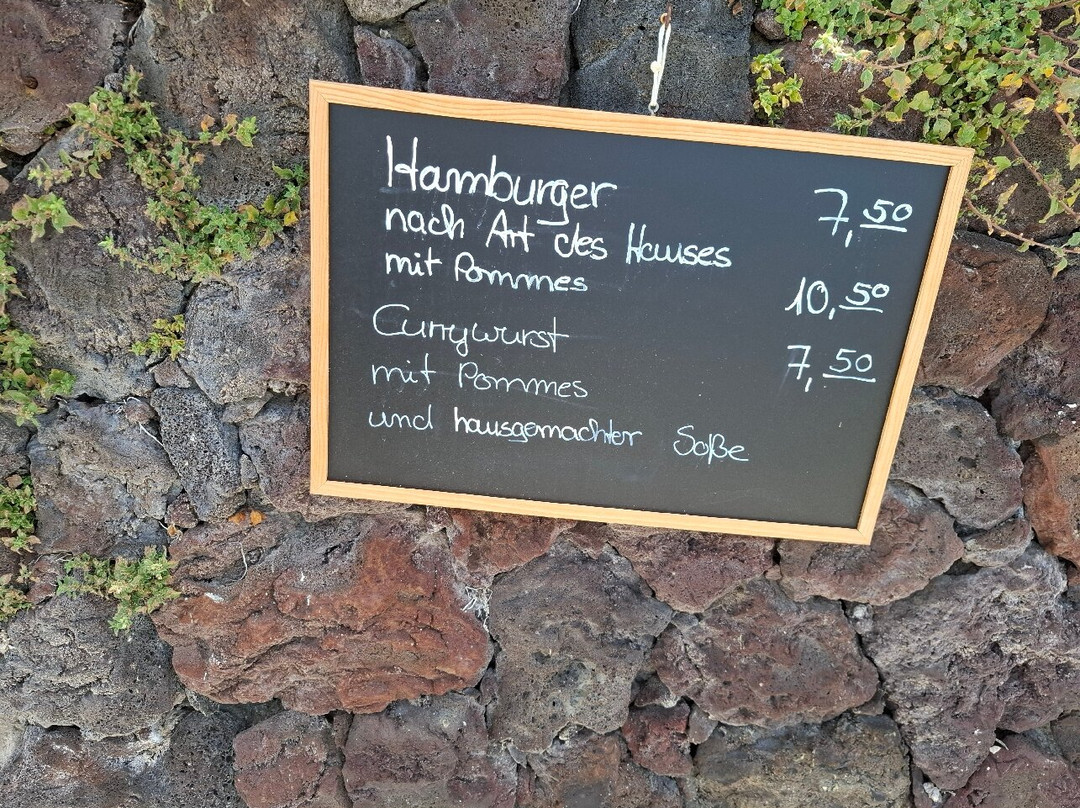 Hamburger 7,50
nach Art des Hauses
mit Pommes 10,50
Currywurst 7,50
mit Pommes
und hausgemachter Soße